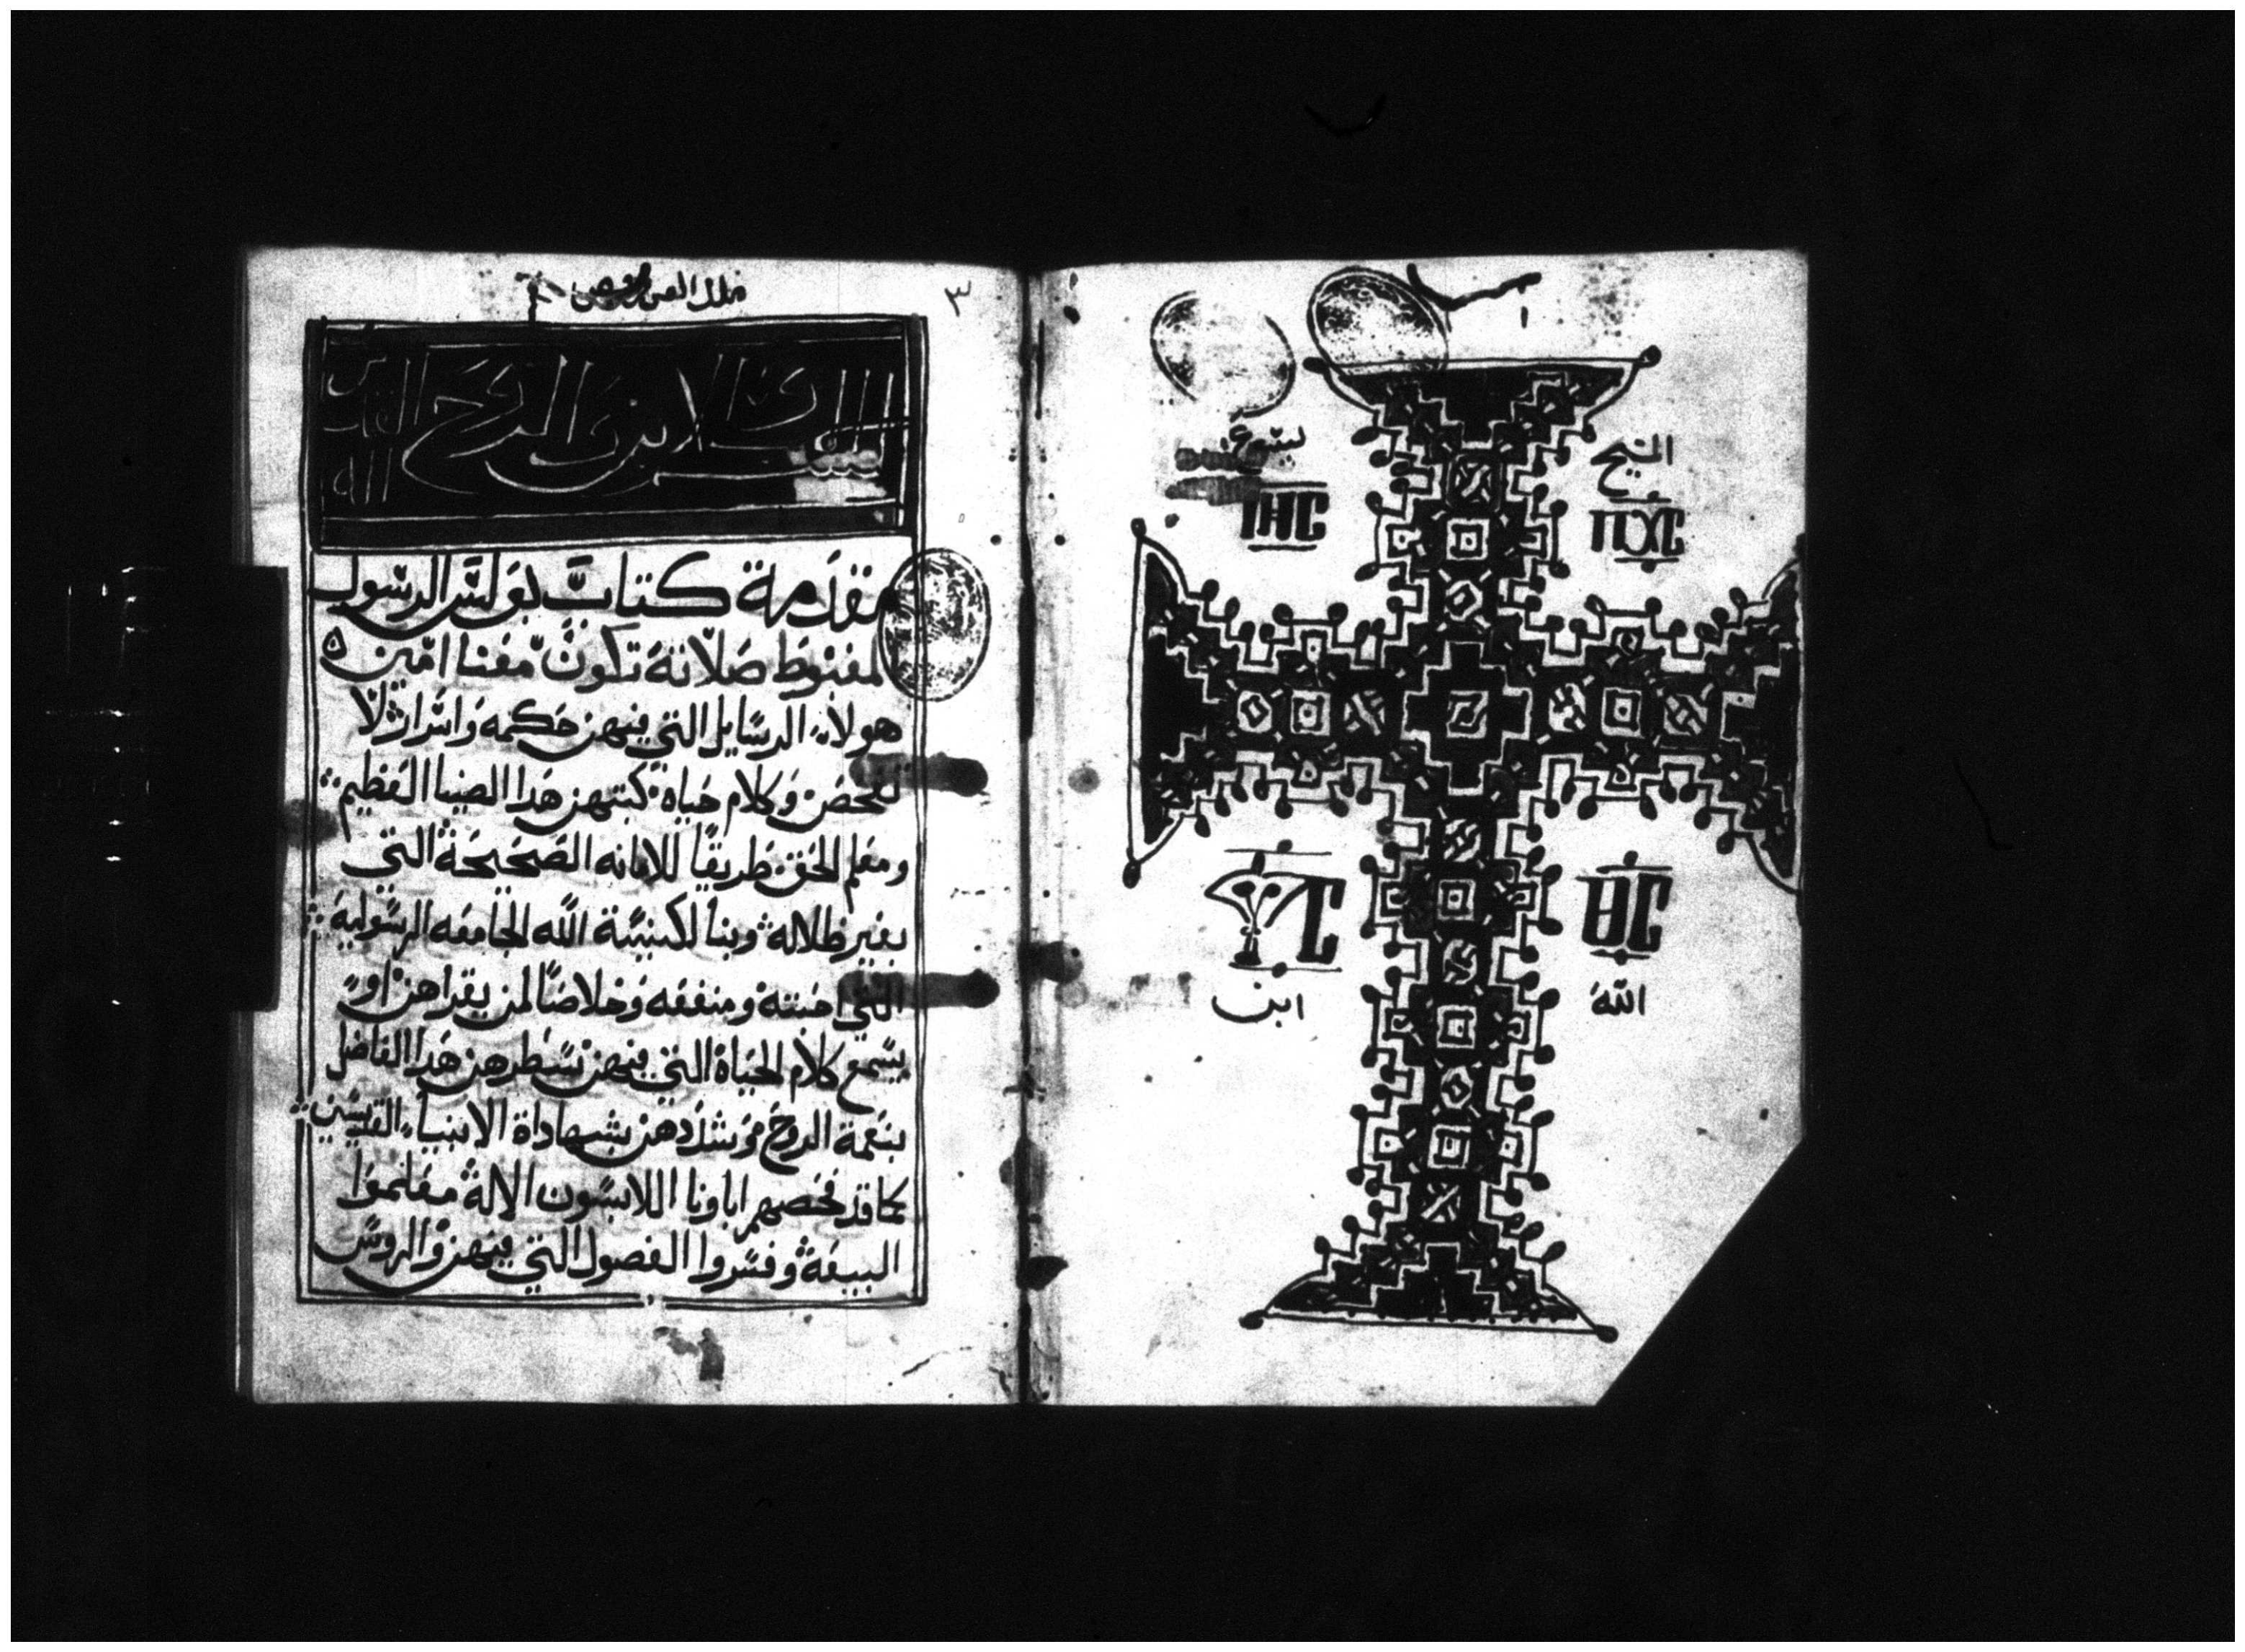 يسوع
المسيح
ⲓⲏⲥ
ⲡⲭⲥ
ⲩⲥ
ⲑⲥ
ابن
الله
٣
بسم الاب والابن والروح القدس الاله
مقدمة كتاب بولس الرسول
المغبوط صلاته تكون معنا امين
هولاء الرسايل التي فيهن حكمه واسرار لا
تفحص وكلام حياه كتبهن هدا الصينا العظيم
ومعلم الحق طريقا للامانه الصحيحة التي
بغير ظلاله وبنا لكنيسة الله الجامعه الرسولية
التي احبته ومنفعه وخلاصا لمن يقراهن او
يسمع كلام الحياة التي فيهن سطرهن هدا الفاضل
بنعمة الروح وشددهن بشهاداة الانبياء القديسين
كما قد فحصهم اباونا اللابسون الاله معلموا
البيعة وفسروا الفصول التي فيهن والروس